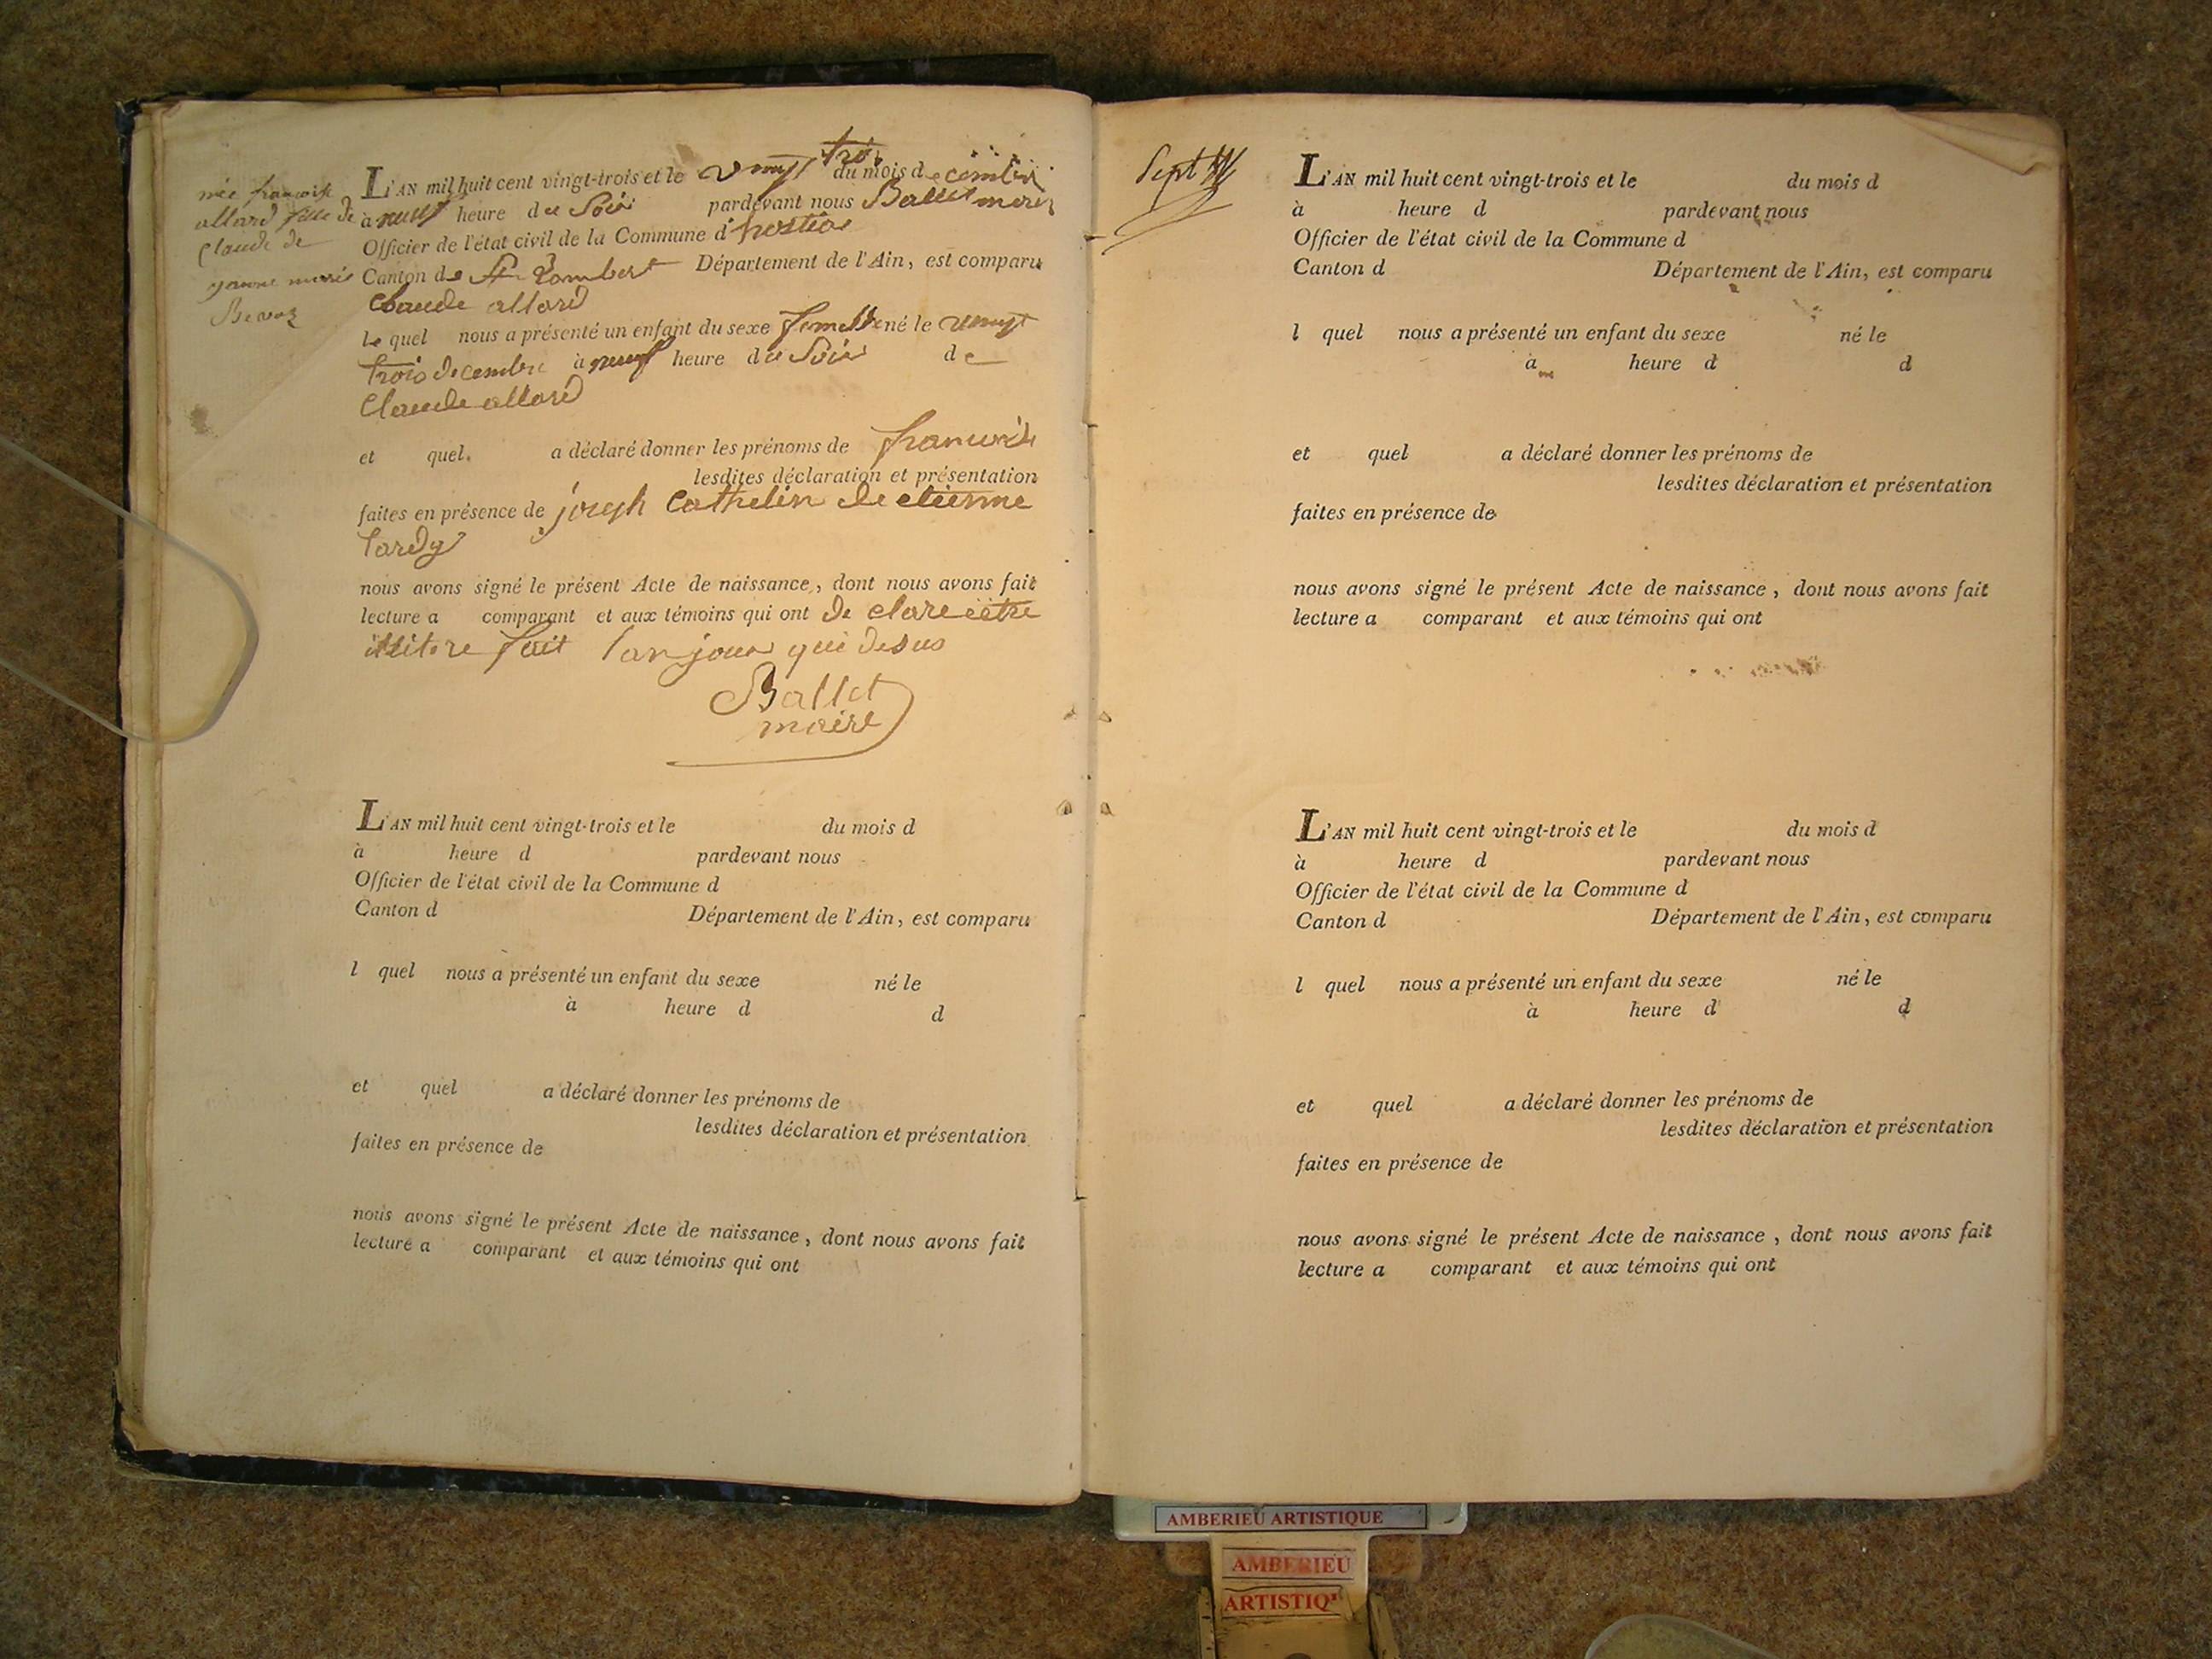 née francoise
allard fille de
Claude de
marie
L'AN mil huit cent vingt-trois et le vingt trois du mois decembre
à neuf heure du Soir pardevant nous Ballet mere
Officier de l'état civil de la Commune d'hostias
Canton de St Rambert Département de l'Ain, est comparu
Claude allard
le quel nous a présenté un enfant du sexe femelle né le vingt
trois decembre à neuf heure du Soir de
Claude allard
et quel. a déclaré donner les prénoms de francoise
lesdites déclaration et présentation
faites en présence de joseph Cathelin de etienne
tardy
nous avons signé le présent Acte de naissance, dont nous avons fait
lecture a comparant et aux témoins qui ont de clare etre
fait lan jour que desus
Ballet
maire
L'AN mil huit cent vingt-trois et le du mois d
à heure d pardevant nous
Officier de l'état civil de la Commune d
Canton d Département de l'Ain, est comparu
l quel nous a présenté un enfant du sexe né le
à heure d d
et quel a déclaré donner les prénoms de
lesdites déclaration et présentation
faites en présence de
nous avons signé le présent Acte de naissance, dont nous avons fait
lecture a comparant et aux témoins qui ont
Sept
L'AN mil huit cent vingt-trois et le du mois d
à heure d pardevant nous
Officier de l'état civil de la Commune d
Canton d Département de l'Ain, est comparu
l quel nous a présenté un enfant du sexe né le
à heure d d
et quel a déclaré donner les prénoms de
lesdites déclaration et présentation
faites en présence de
nous avons signé le présent Acte de naissance, dont nous avons fait
lecture a comparant et aux témoins qui ont
L'AN mil huit cent vingt-trois et le du mois d
à heure d pardevant nous
Officier de l'état civil de la Commune d
Canton d Département de l'Ain, est comparu
l quel nous a présenté un enfant du sexe né le
à heure d d
et quel a déclaré donner les prénoms de
lesdites déclaration et présentation
faites en présence de
nous avons signé le présent Acte de naissance, dont nous avons fait
lecture a comparant et aux témoins qui ont
AMBERIEU ARTISTIQUE
AMBERIEU
ARTISTIQ